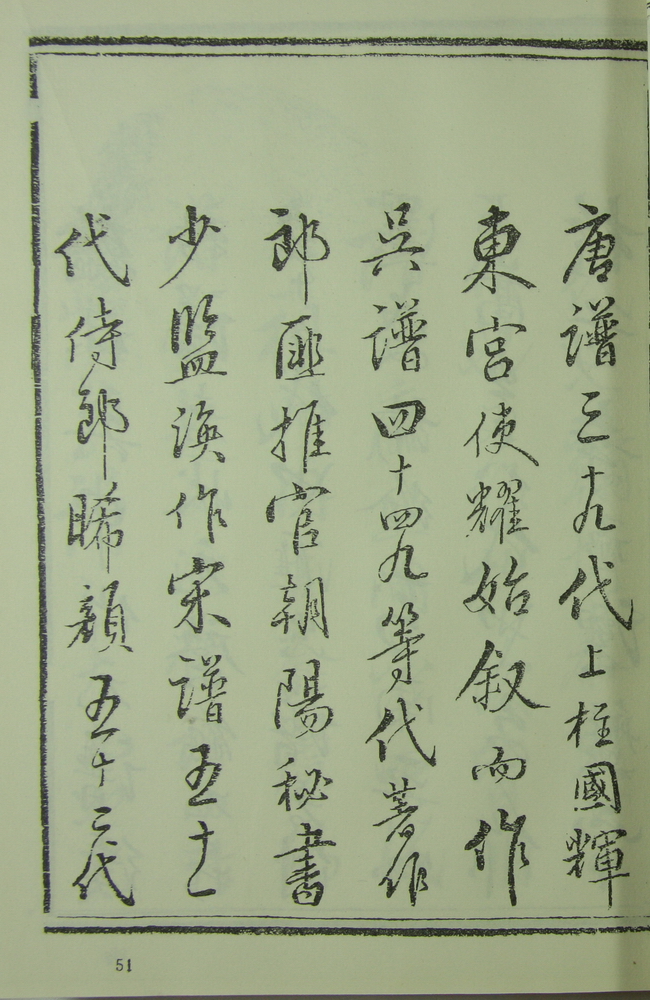 唐譜三十九代上柱國輝
東宮使耀始叙而作
吳譜四十四九等代著作
郎匪推官朝陽秘書
少監渙作宋譜五十一
代侍郎睎顏五十二代
51